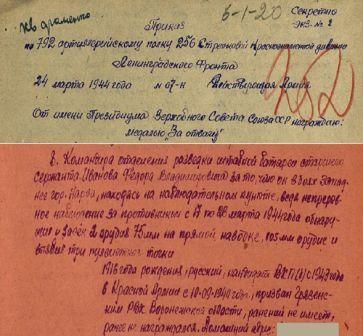 Секретно
Экз. № 2
6-1-20
Приказ
по 792 артиллерийскому полку 256 Стрелковой Краснознаменной дивизии
Ленинградского Фронта
24 марта 1944 года № 07-н Действующая Армия
От имени Президиума Верховного Совета Союза ССР награждаю:
медалью "За отвагу"
6. Командира отделения разведки штабной батареи старшего
сержанта Иванова Федора Владимировича за то, что он в боях запад-
нее гор. Нарва, находясь на наблюдательном пункте, ведя непрерыв-
ное наблюдение за противником с 17 по марта 1944 года обнару-
жил и засек 2 орудия 75 мм на прямой наводке, 105 мм орудие и
выявил три пулеметных точки
1918 года рождения, русский, кандидат ВКП(б) с 1943 года
в Красной Армии с 10-09-1940 года, призван Грязенс-
ким РВК Воронежской области, ранений не имеет,
ранее не награждался. Домашний адрес: